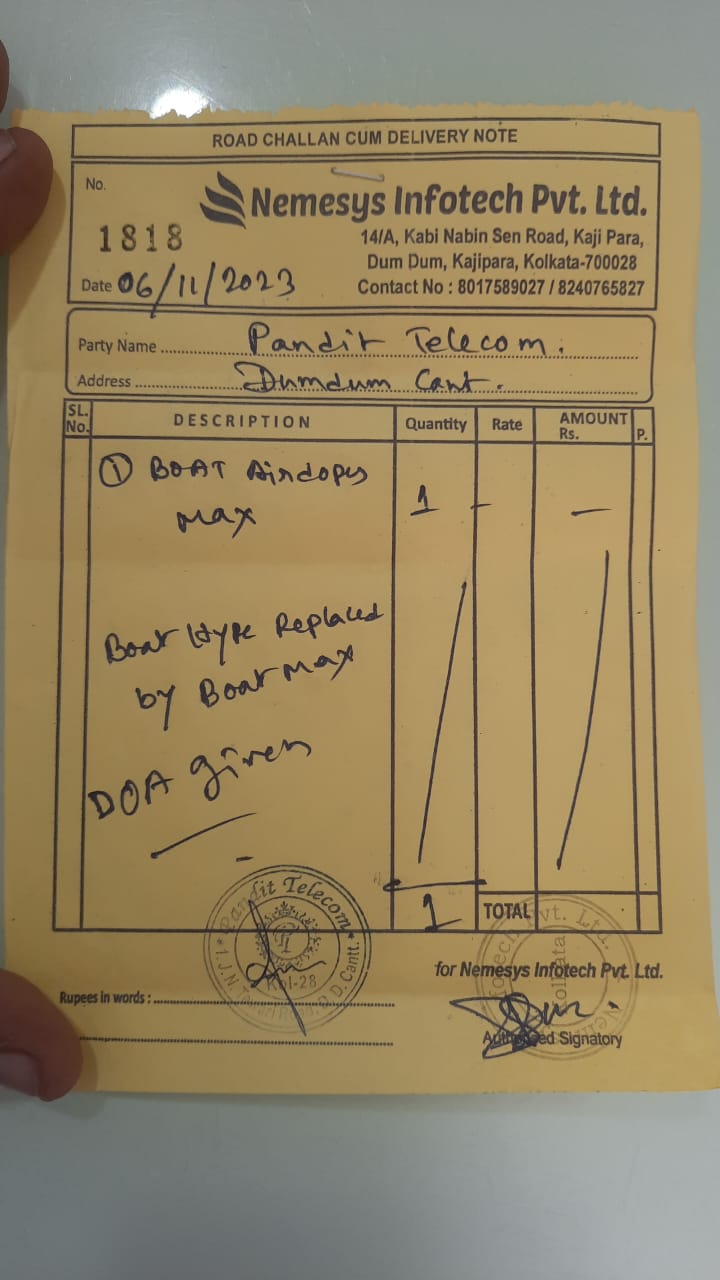 ROAD CHALLAN CUM DELIVERY NOTE
No.
1818
Nemesys Infotech Pvt. Ltd.
14/A, Kabi Nabin Sen Road, Kaji Para,
Dum Dum, Kajipara, Kolkata-700028
Contact No : 8017589027 / 8240765827
Date 06/11/2023
Party Name Pandit Telecom.
Address Dumdum Cant.
SL. No. DESCRIPTION Quantity Rate AMOUNT Rs. P.
① BOAT Airdopes 1 - -
Max
Boat Hype Replaced
by Boat Max
DOA given
1 TOTAL
Pandit Telecom
Kol-28
D. Cantt.
for Nemesys Infotech Pvt. Ltd.
Rupees in words :
Authorised Signatory
Kolkata